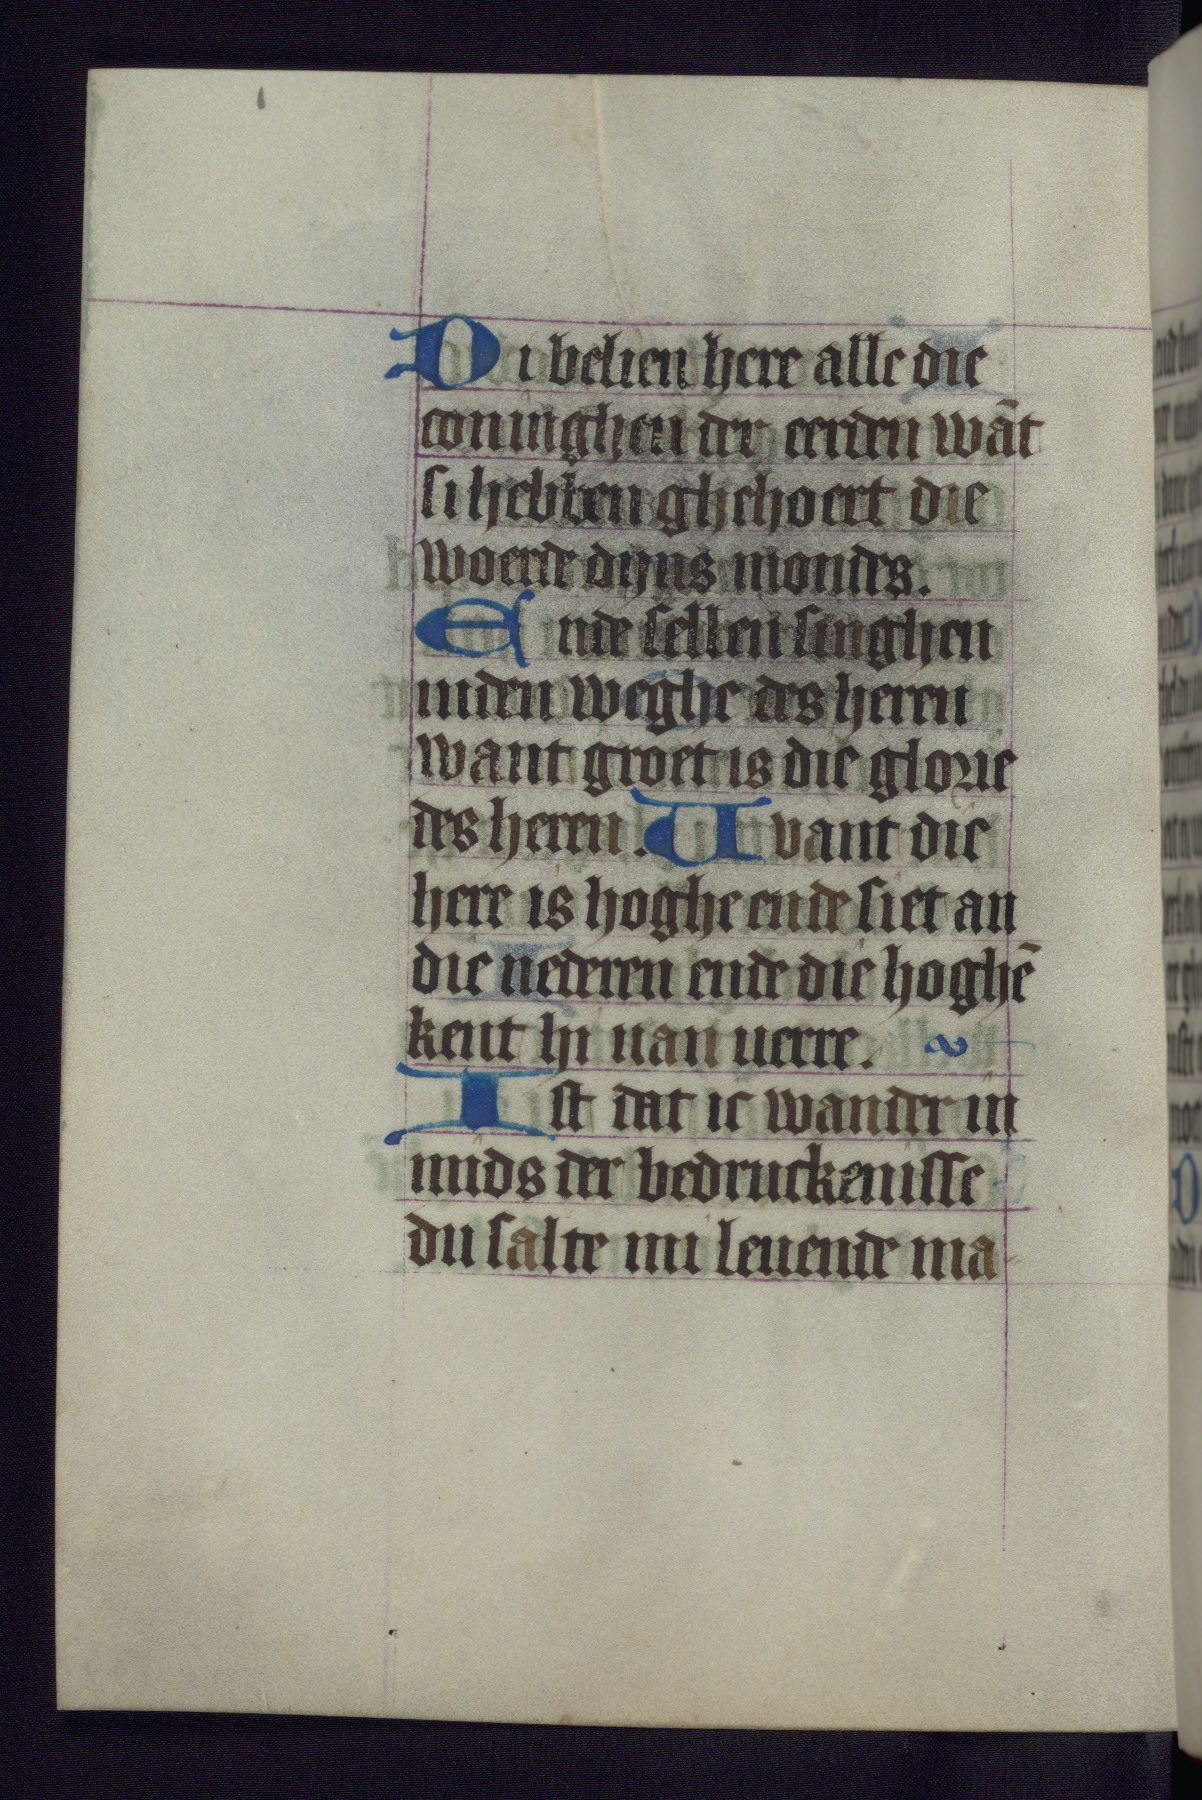 Di belien here alle die
coninghen der eerden wāt
si hebben ghehoert die
woerde dyns mondes.
Ende sellen singhen
inden weghe des heren
want groet is die glorie
des heren. Uvant die
here is hoghe ende siet an
die nederen ende die hoghē
kent hi uan uerre.
Ist dat ic wander in
mids der bedruckenisse
du salte mi leuende ma